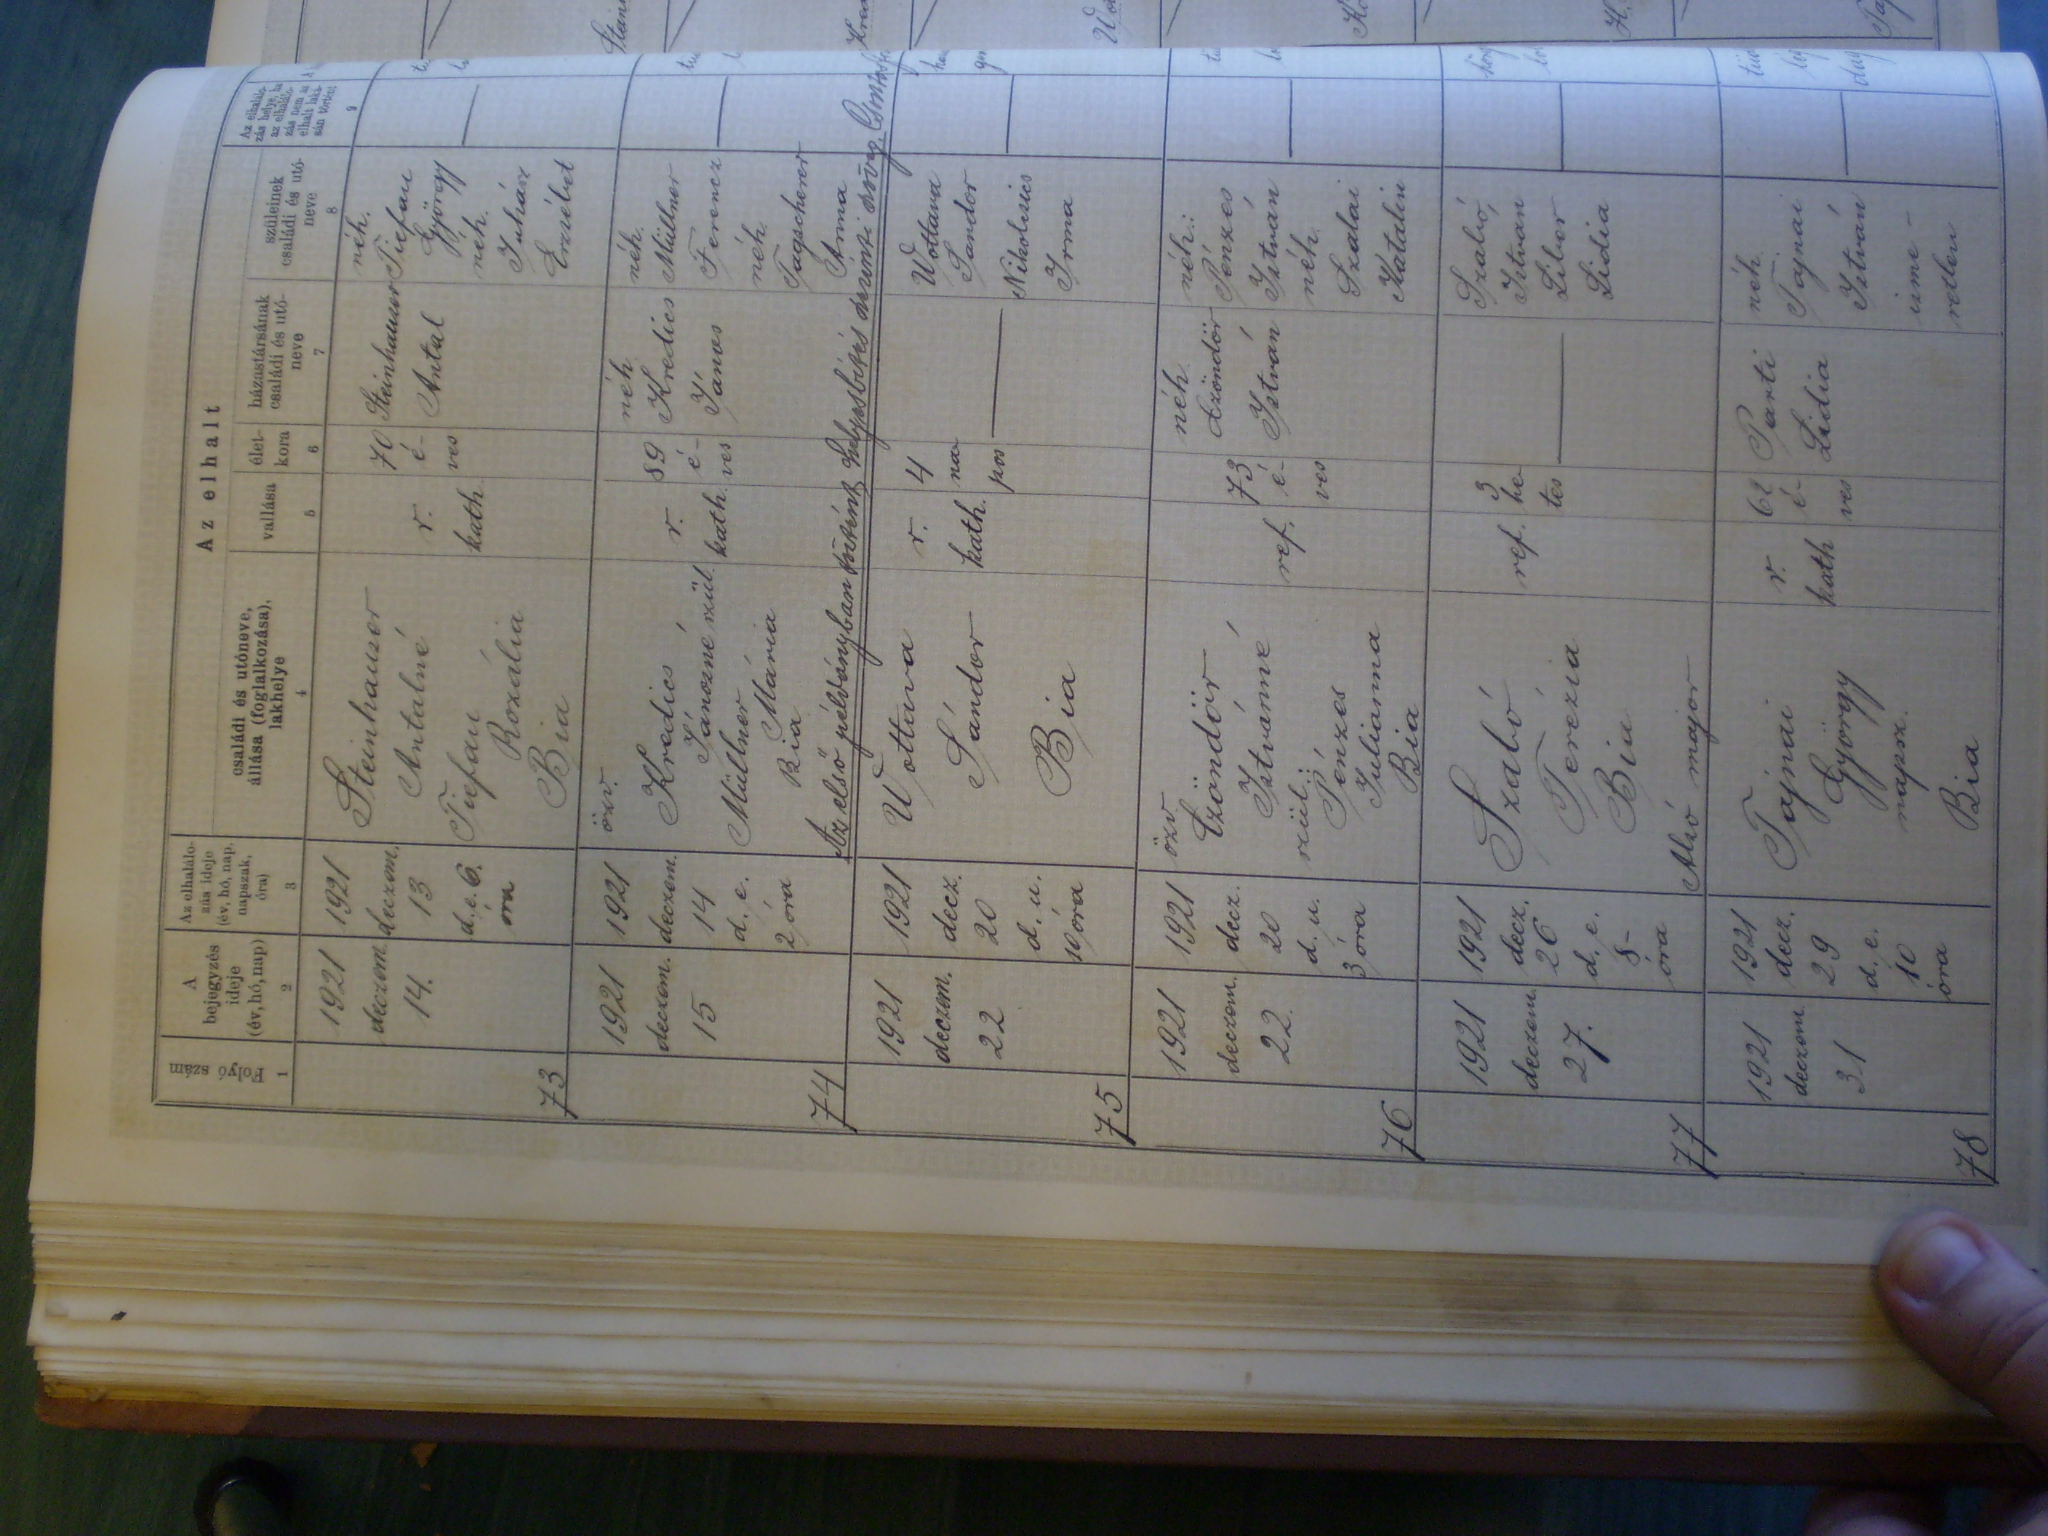 Az elhalt
Folyó szám
A bejegyzés ideje (év, hó, nap)
Az elhalálozás ideje (év, hó, nap, napszak, óra)
családi és utóneve, állása (foglalkozása), lakhelye
vallása
életkora
házastársának családi és utóneve
szüleinek családi és utóneve
Az elhalálozás helye, ha az elhalálozás nem az elhalt lakásán történt
1 2 3 4 5 6 7 8 9
73
1921
deczem.
14.
1921
deczem.
13
d. e. 6.
óra
Steinhauser
Antalné
Tiefau
Rozália
Bia
r.
kath.
70
é-
ves
Steinhauser
Antal
néh.
Tiefau
György
néh.
Juhász
Erzsébet
74
1921
deczem.
15
1921
deczem.
14
d. e.
2 óra
özv.
Kredics
Jánosné szül.
Müllner Mária
Bia
r.
kath.
89
é-
ves
néh.
Kredics
János
néh.
Müllner
Ferencz
néh.
Tagscherer
Anna
Az első példányban történt helyesbítés szerinti szöveg
75
1921
deczem.
22
1921
decz.
20
d. u.
10 óra
Wottava
Sándor
Bia
r.
kath.
4
na
pos
Wottava
Sándor
Nikolicsics
Irma
76
1921
deczem.
22.
1921
decz.
20
d. u.
3 óra
özv
Czöndör
Istvánné
szül.:
Pénzes
Julianna
Bia
ref.
73
é-
ves
néh.
Czöndör
István
néh.:
Pénzes
István
néh.
Szalai
Katalin
77
1921
deczem.
27.
1921
decz.
26
d. e.
8-
óra
Szabó
Terézia
Bia
Alsó major
ref.
3
he-
tes
Szabó,
István
Libor
Lidia
78
1921
deczem.
31
1921
decz.
29
d. e.
10
óra
Tajnai
György
napsz.
Bia
r.
kath
62
é-
ves
Panti
Lidia
néh.
Tajnai
István
isme-
retlen